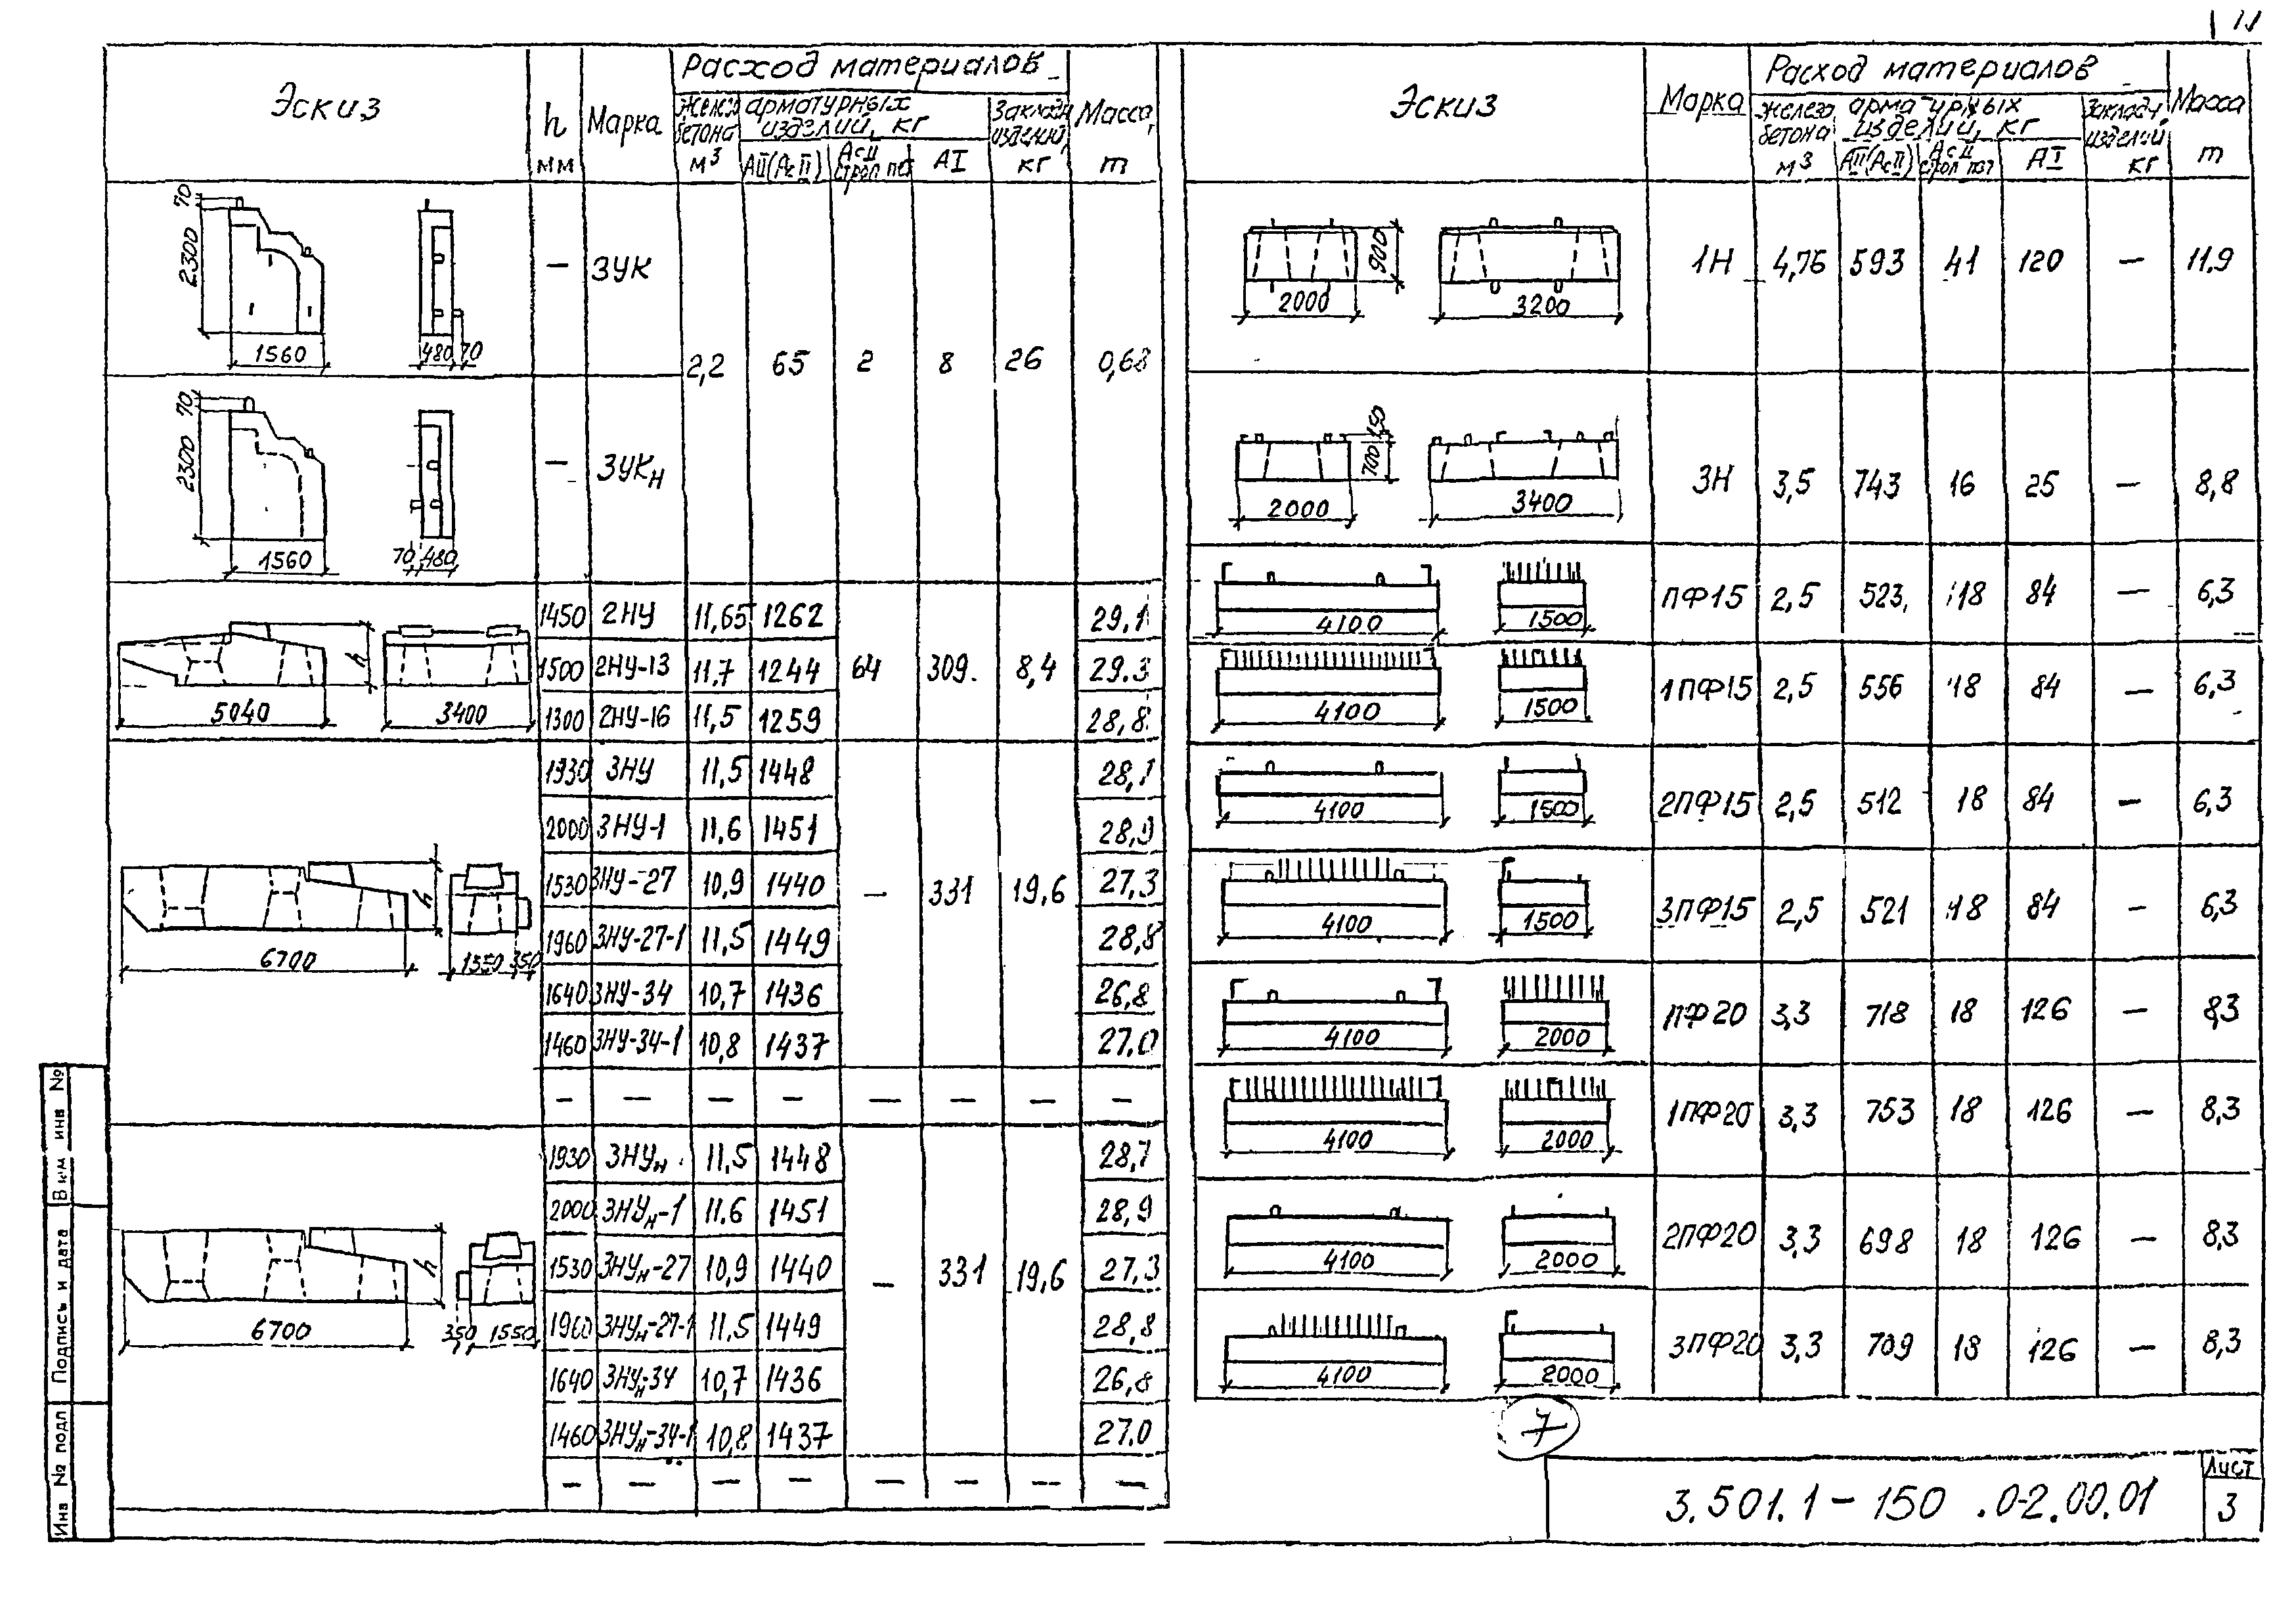 11
Эскиз
h
мм
Марка
Расход материалов
Железо
бетона
м³
арматурных
изделий, кг
АII(АсII)
АсII
строп пет
АI
Закладн
изделий,
кг
Масса,
т
70
2300
1560
480 70
— 3УК
2,2 65 2 8 26 0,68
70
2300
1560
70 480
— 3УКн
h
5040
3400
1450 2НУ 11,65 1262 29.1
1500 2НУ-13 11.7 1244 64 309. 8,4 29.3
1300 2НУ-16 11,5 1259 28,8
1930 3НУ 11,5 1448 28,7
2000 3НУ-1 11,6 1451 28,9
h
6700
1550 350
1530 3НУ-27 10,9 1440 — 331 19,6 27,3
1960 3НУ-27-1 11,5 1449 28,8
1640 3НУ-34 10,7 1436 26,8
1460 3НУ-34-1 10,8 1437 27.0
— — — — — — — —
1930 3НУн 11.5 1448 28,7
2000 3НУн-1 11.6 1451 28,9
h
6700
350 1550
1530 3НУн-27 10,9 1440 — 331 19,6 27,3
1960 3НУн-27-1 11.5 1449 28,8
1640 3НУн-34 10,7 1436 26,8
1460 3НУн-34-1 10,8 1437 27.0
— — — — — — — —
Эскиз
Марка
Расход материалов
Железо
бетона
м³
арматурных
изделий, кг
АII(АсII)
АсII
строп пет
АI
Закладн
изделий
кг
Масса
т
900
2000
3200
1Н 4,76 593 41 120 — 11.9
150
700
2000
3400
3Н 3,5 743 16 25 — 8,8
4100
1500
ПФ15 2,5 523, 18 84 — 6,3
4100
1500
1ПФ15 2,5 556 18 84 — 6,3
4100
1500
2ПФ15 2,5 512 18 84 — 6,3
4100
1500
3ПФ15 2,5 521 18 84 — 6,3
4100
2000
ПФ20 3,3 718 18 126 — 8,3
4100
2000
1ПФ20 3,3 753 18 126 — 8,3
4100
2000
2ПФ20 3,3 698 18 126 — 8,3
4100
2000
3ПФ20 3,3 709 18 126 — 8,3
7
3.501.1-150 .0-2.00.01
Лист
3
Инв № подл
Подпись и дата
Взам инв №